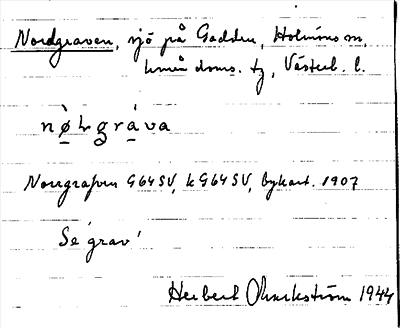 Nordgraven, sjö på Gadden, Holmöns sn,
Umeå doms. tg, Västerb. l.
nø̀Lgrá̱va
Norrgrafven G64SV, k G64SV, bykart. 1907
Se 'grav'
Herbert Markström 1944